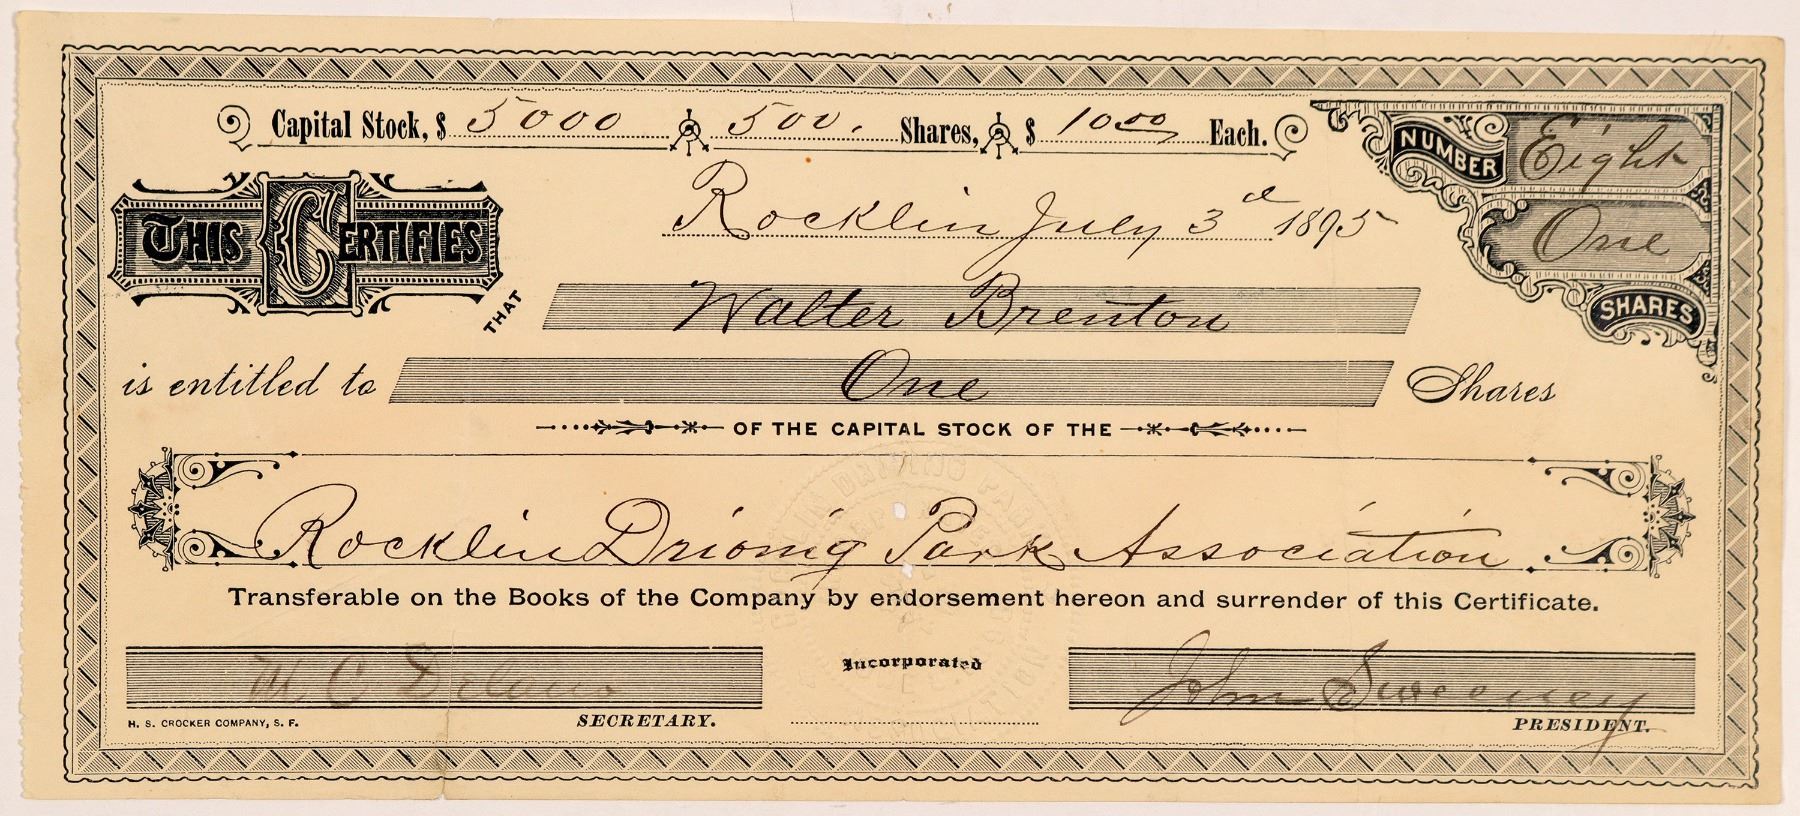 Capital Stock, $ 5000 500. Shares, $ 10.00 Each.
NUMBER Eight
Rocklin July 3d 1895
One SHARES
THIS CERTIFIES THAT Walter Brenton
is entitled to One Shares
OF THE CAPITAL STOCK OF THE
Rocklin Driving Park Association
Transferable on the Books of the Company by endorsement hereon and surrender of this Certificate.
C Delano
Incorporated
John Sweeney
H. S. CROCKER COMPANY, S. F.
SECRETARY.
PRESIDENT.